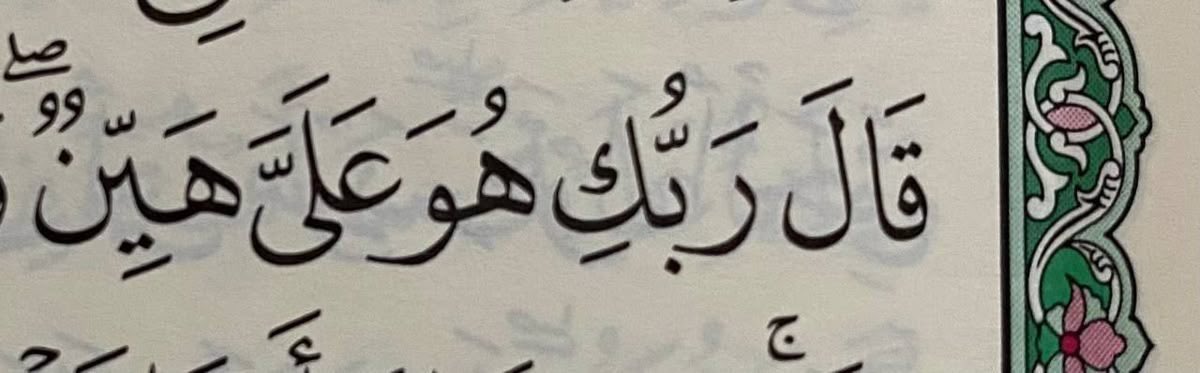 قَالَ رَبُّكِ هُوَ عَلَىَّ هَيِّنٌ ۖ